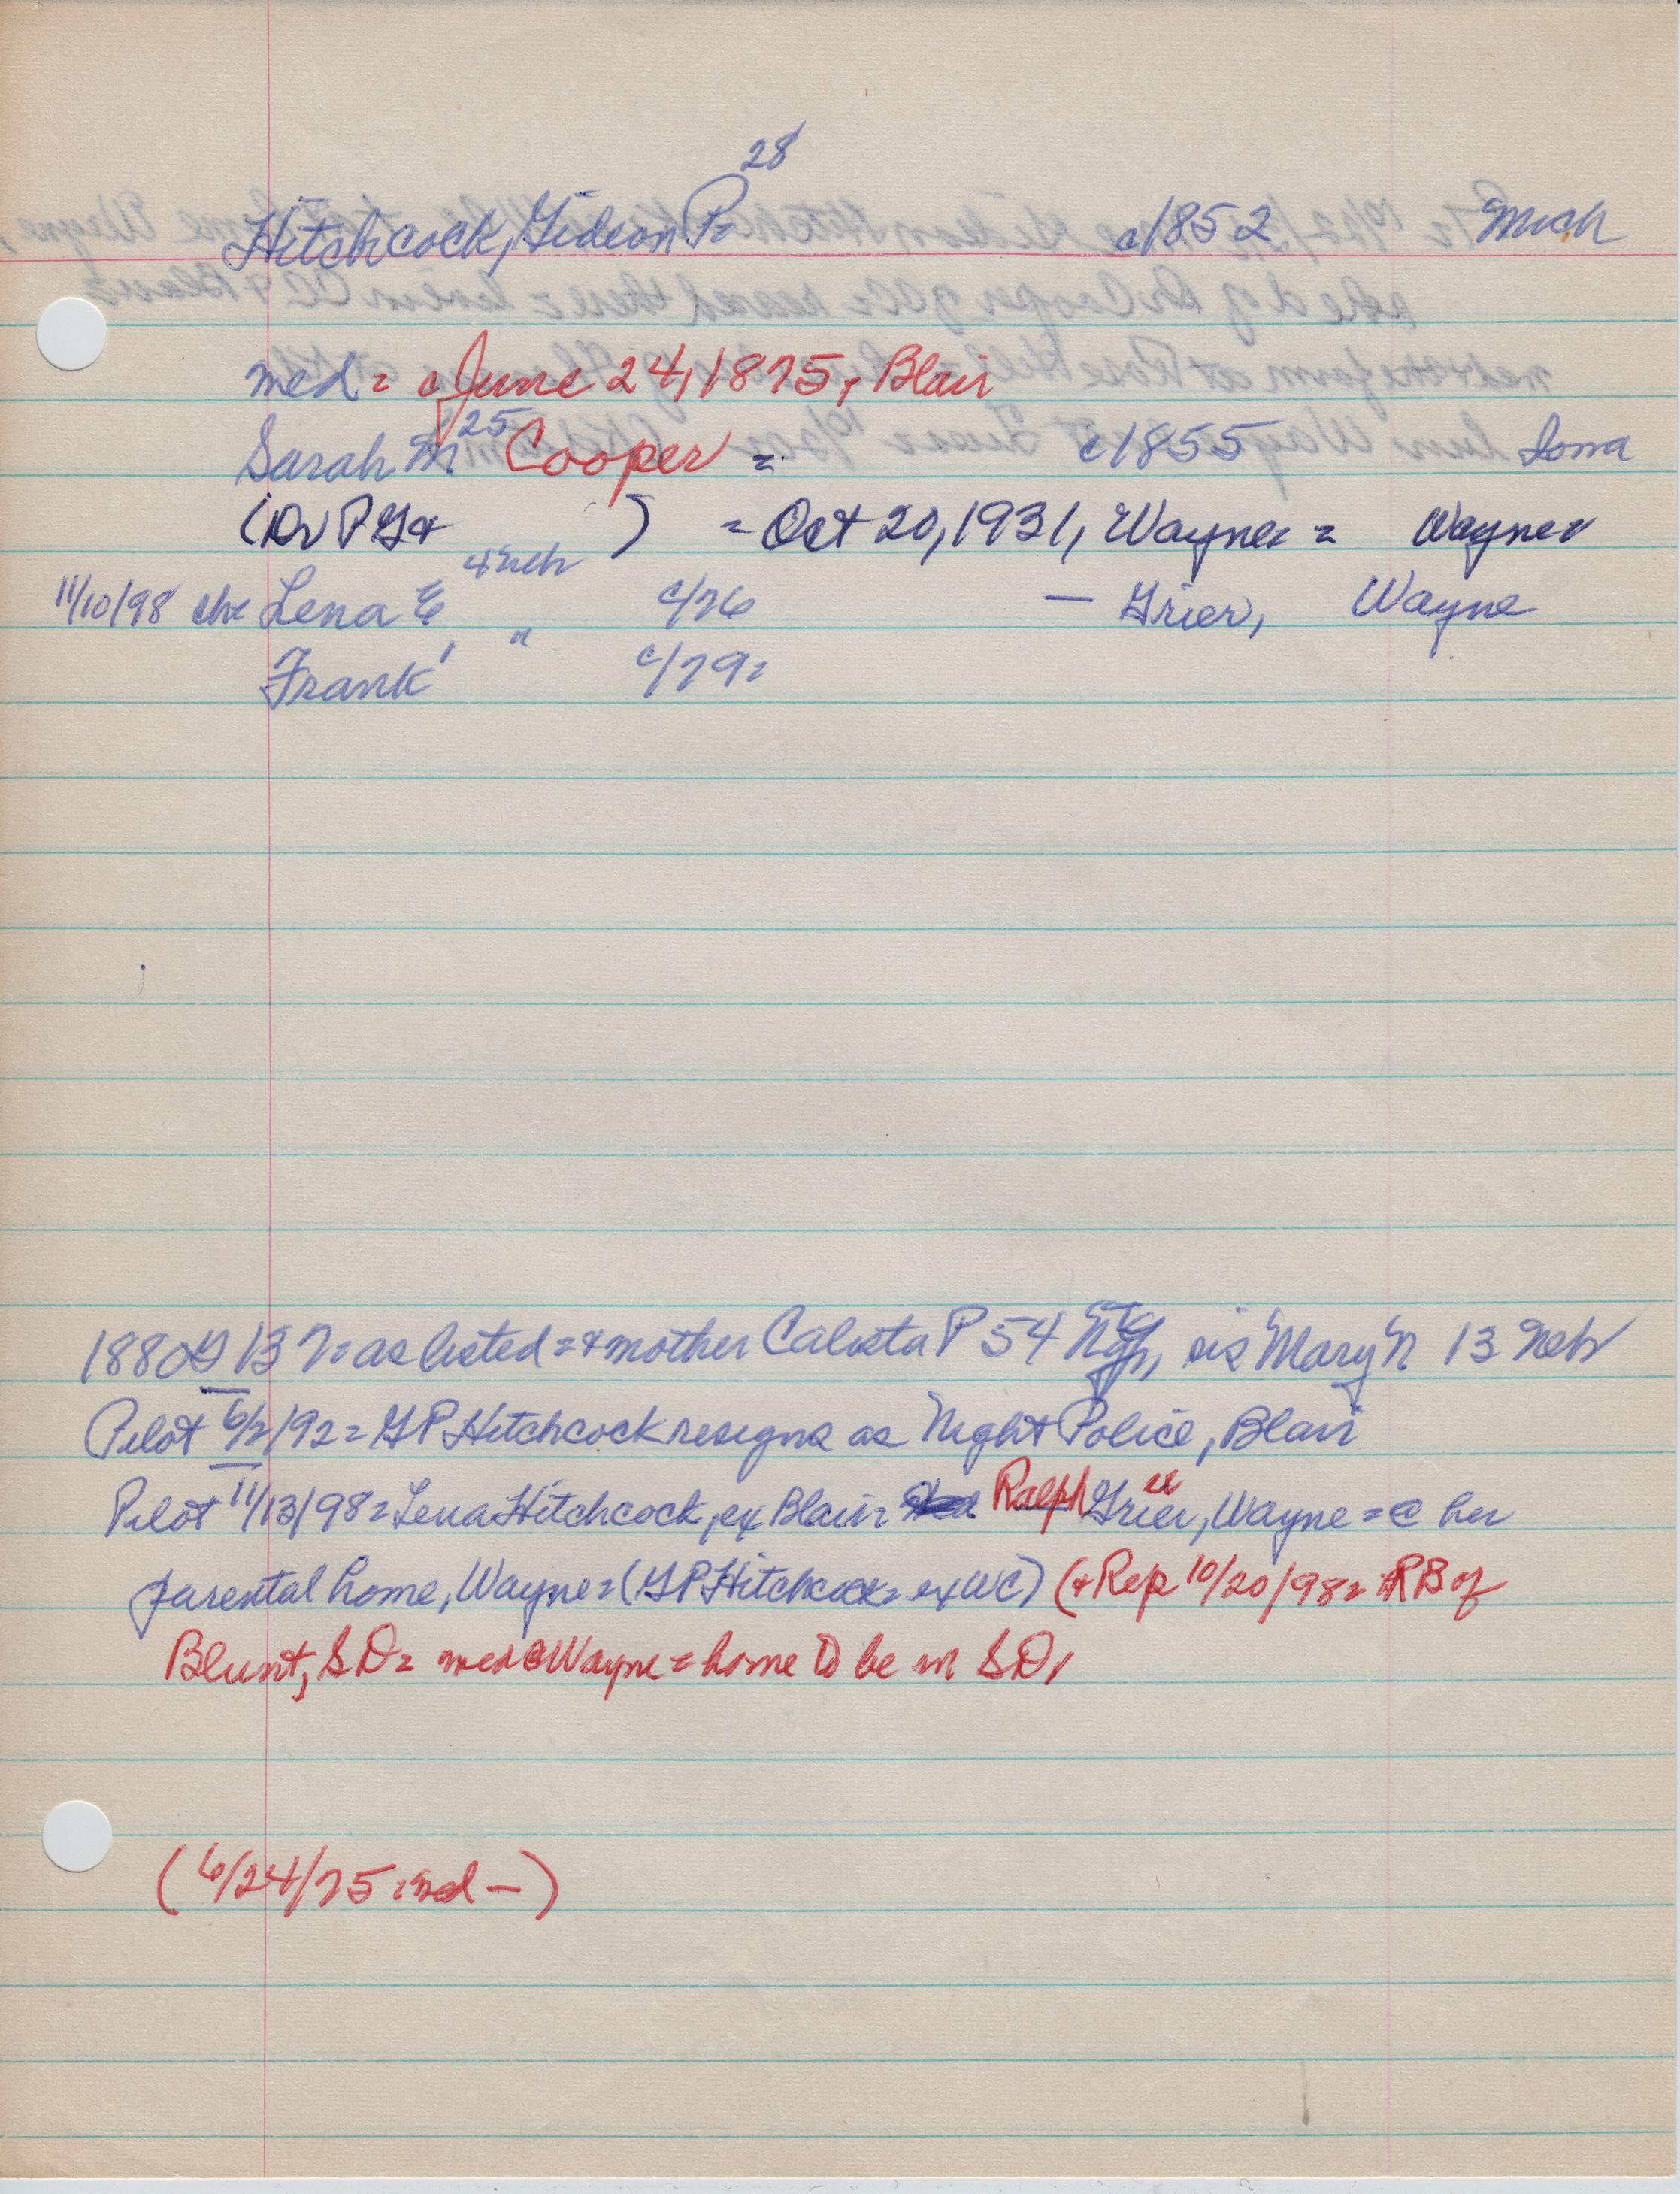 28
Hitchcock, Gideon P= c1852 Mich
med = c June 24, 1875, Blair
Sarah M 25 Cooper = c1855 Iowa
(Dr P G & ) = Oct 20, 1931, Wayne = Wayne
4 Neb
11/10/98 ch= Lena E, c/76 — Grier, Wayne
Frank, " c/79=
1880 13 7= as listed = & mother Calista P 54 NY, sis Mary N 13 Neb
Pilot 6/2/92 = GP Hitchcock resigns as Night Police, Blair
Pilot 11/13/98 = Lena Hitchcock, ex Blair = Ralph Grier, Wayne = @ her
parental home, Wayne = (GP Hitchcock = ex WC) (+ Rep 10/20/98 = RB of
Blunt, SD = med @ Wayne = home to be in SD,
(6/24/75 = med —)